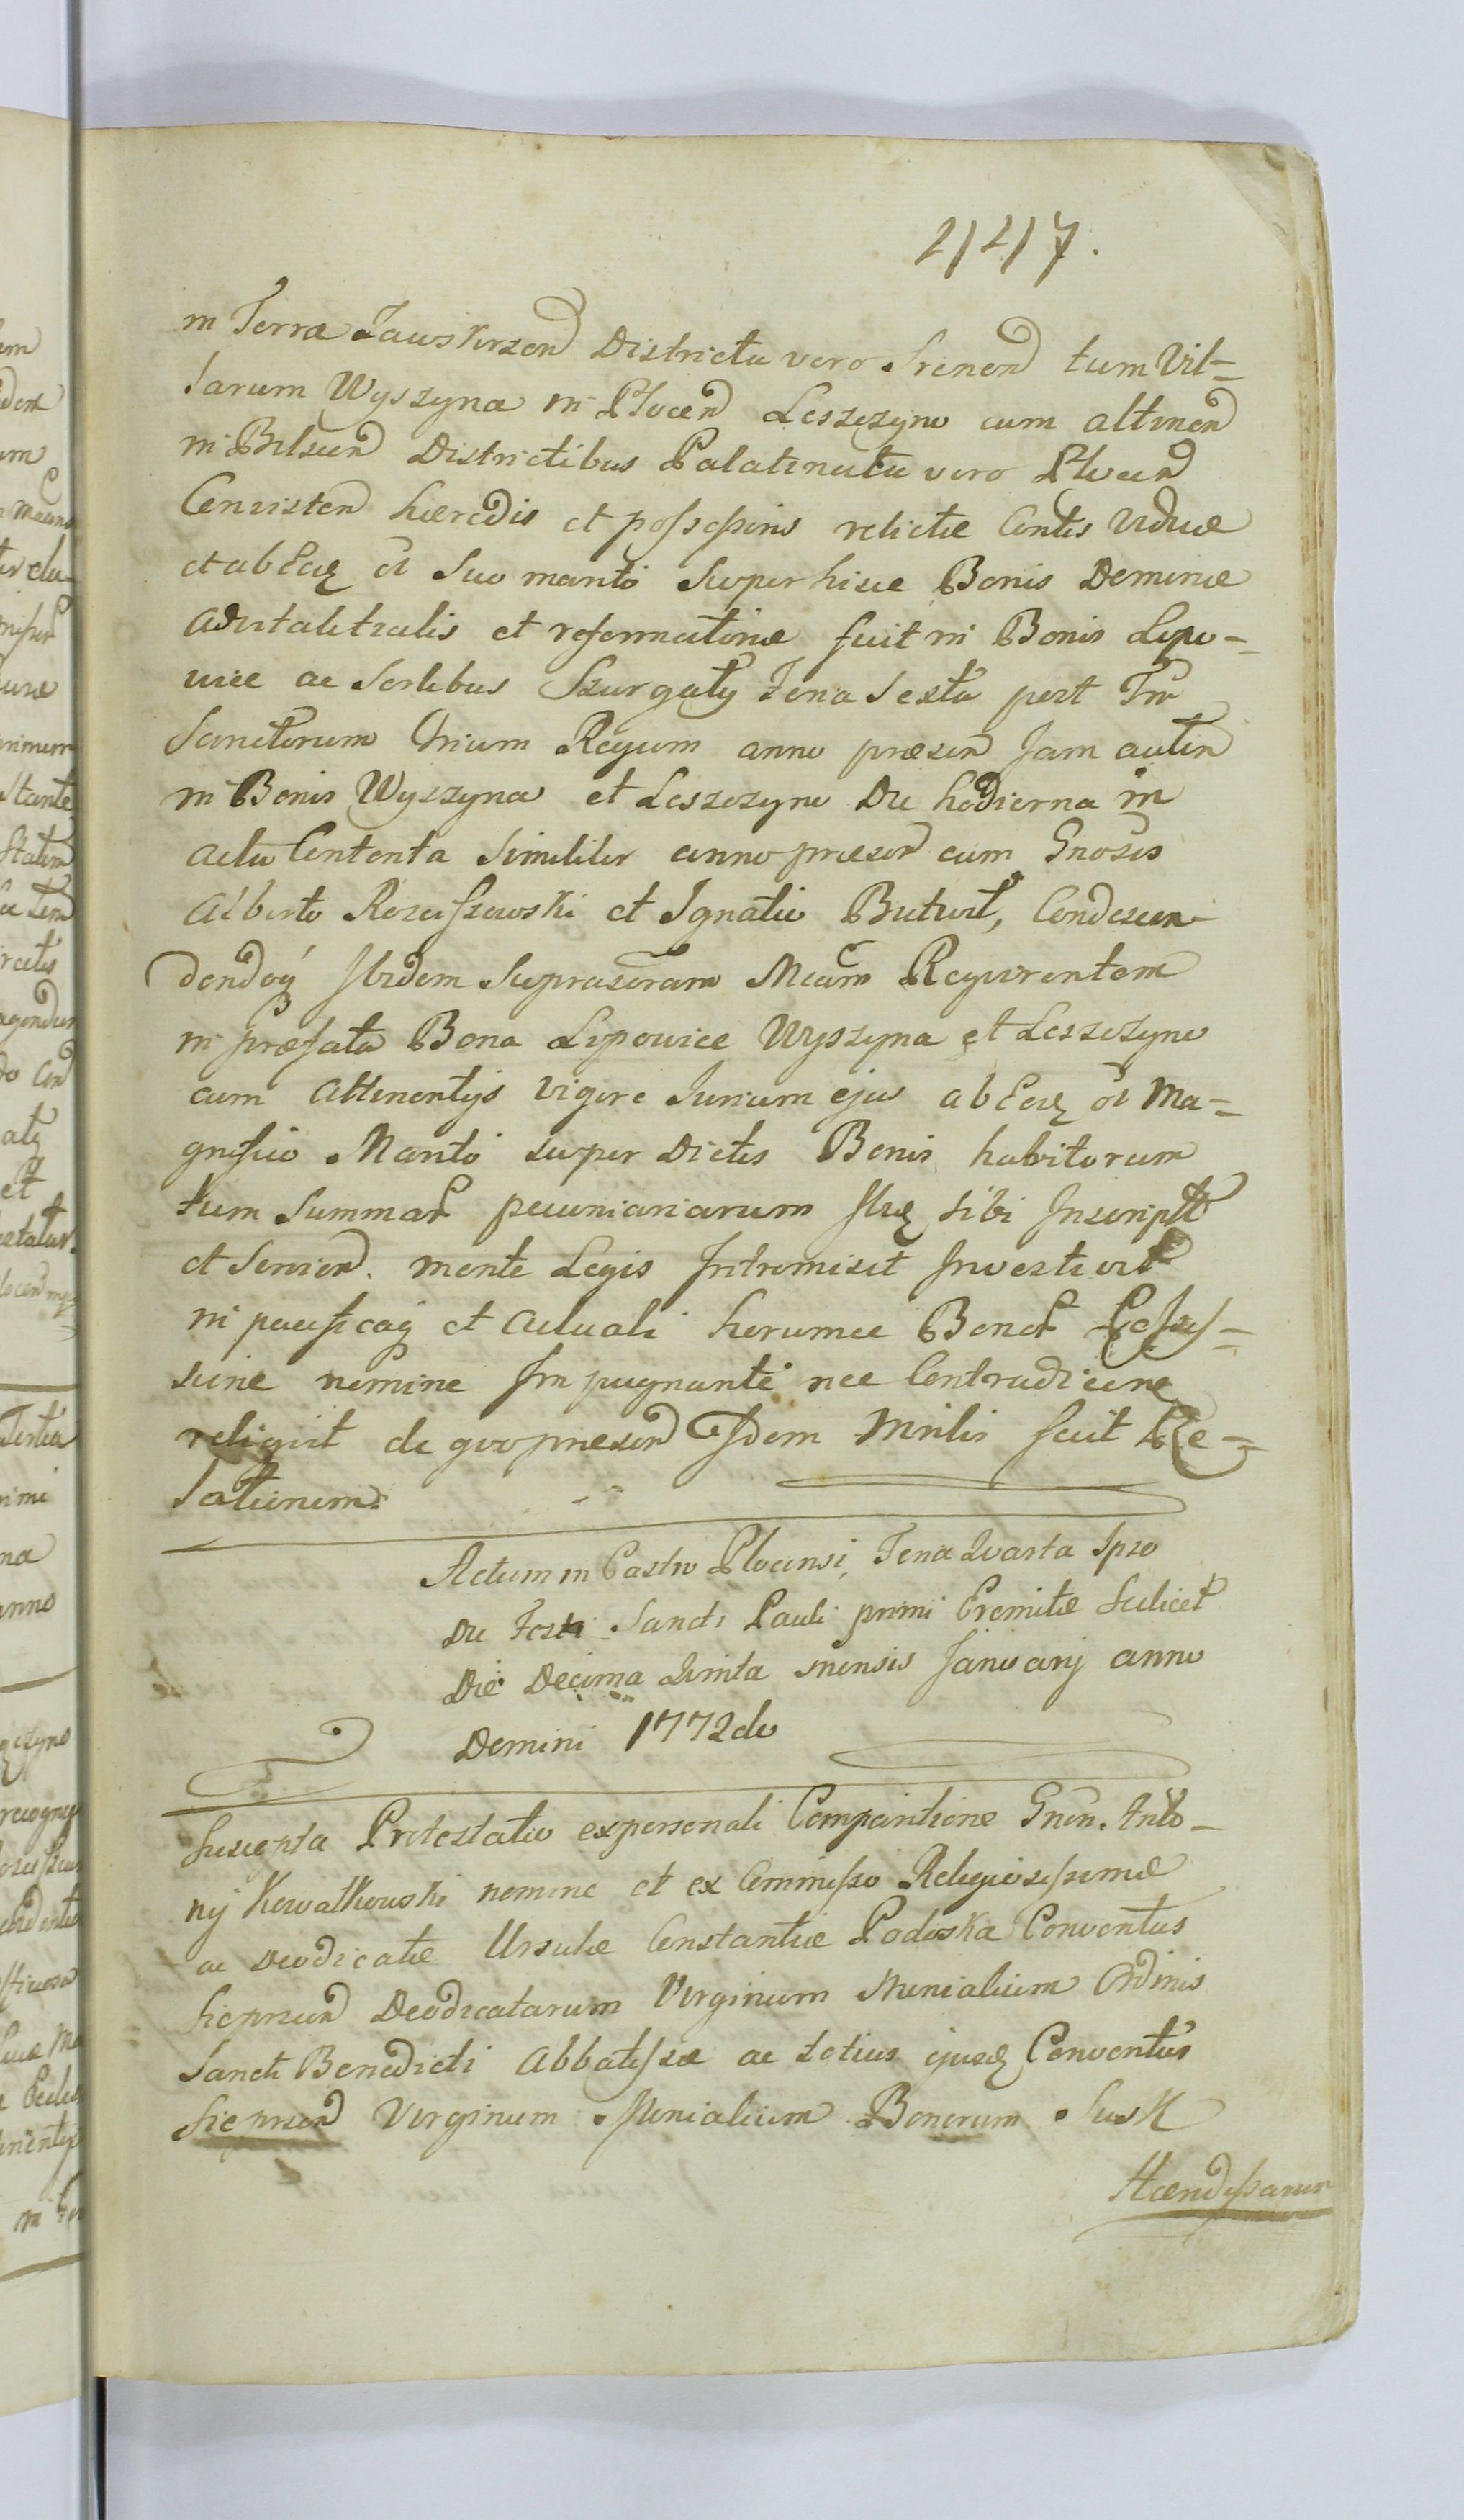 21217.
in Terra Zawskrzen Districtu vero Srenen tum Vil=
larum Wyszyna in Plocen Leszczyno cum attinen
in Bielscen Districtibus Palatinatu vero Plocen
Consisten hæredis et possessoris relictæ Contis viduæ
et ab Eodę oi Suo marito Super hisce Bonis Dominæ
advitalitialis et reformatoriæ fuit in Bonis Lipo=
wiec ac Sortibus Szurgaty Feria Sexta post Fm
Sanctorum trium Regum anno præsen Jam autem
in Bonis Wyszyna et Leszczyno Die hodierna in
actu Contenta Similiter anno præsen cum Gnosis
Alberto Rosciszewski et Ignatio Buturt, Condescen-
dendoq Ibidem Suprascram Mcam Requirentem
in præfata Bona Lipowiec Wyszyna et Leszczyno
cum Attinentijs vigore Jurium ejus ab Eodę oi Ma=
gnifico Marito super Dictis Bonis habitorum
tum Summar pecuniariarum sibi Inscript
et Servien. mente Legis Intromisit Investivit
in pacificaq et Actuali horumce Bonor Posses=
sione nemine Impugnante nec Contradicene
reliquit de quo præsen Idem Mnlis fecit Re=
lationem
Actum in Castro Plocensi, Feria Quarta Ipso
Die Festi Sancti Pauli primi Eremitæ Scilicet
Die Decima Quinta mensis Januarij anno
Domini 1772do
Suscepta Protestatio ex personali Comparitione Gnen. Anto-
nij Kowalkowski nomine et ex Commisso Religiosissimæ
ac Deodicatæ Ursulæ Constantiæ Podoska Conventus
Sieprcen Deodicatarum Virginum Monialium Ordinis
Sancti Benedicti Abbatissæ ac totius ejusdę Conventus
Sieprcen Virginum Monialium Bonorum Susk
Hæredissarum